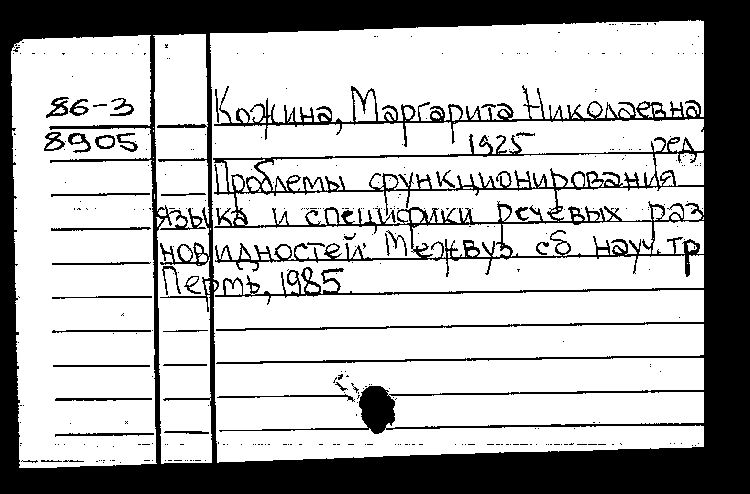 86-3
8905
Кожина, Маргарита Николаевна,
1925 ред.
Проблемы функционирования
языка и специфики речевых раз
новидностей: Межвуз. сб. науч. тр
Пермь, 1985.